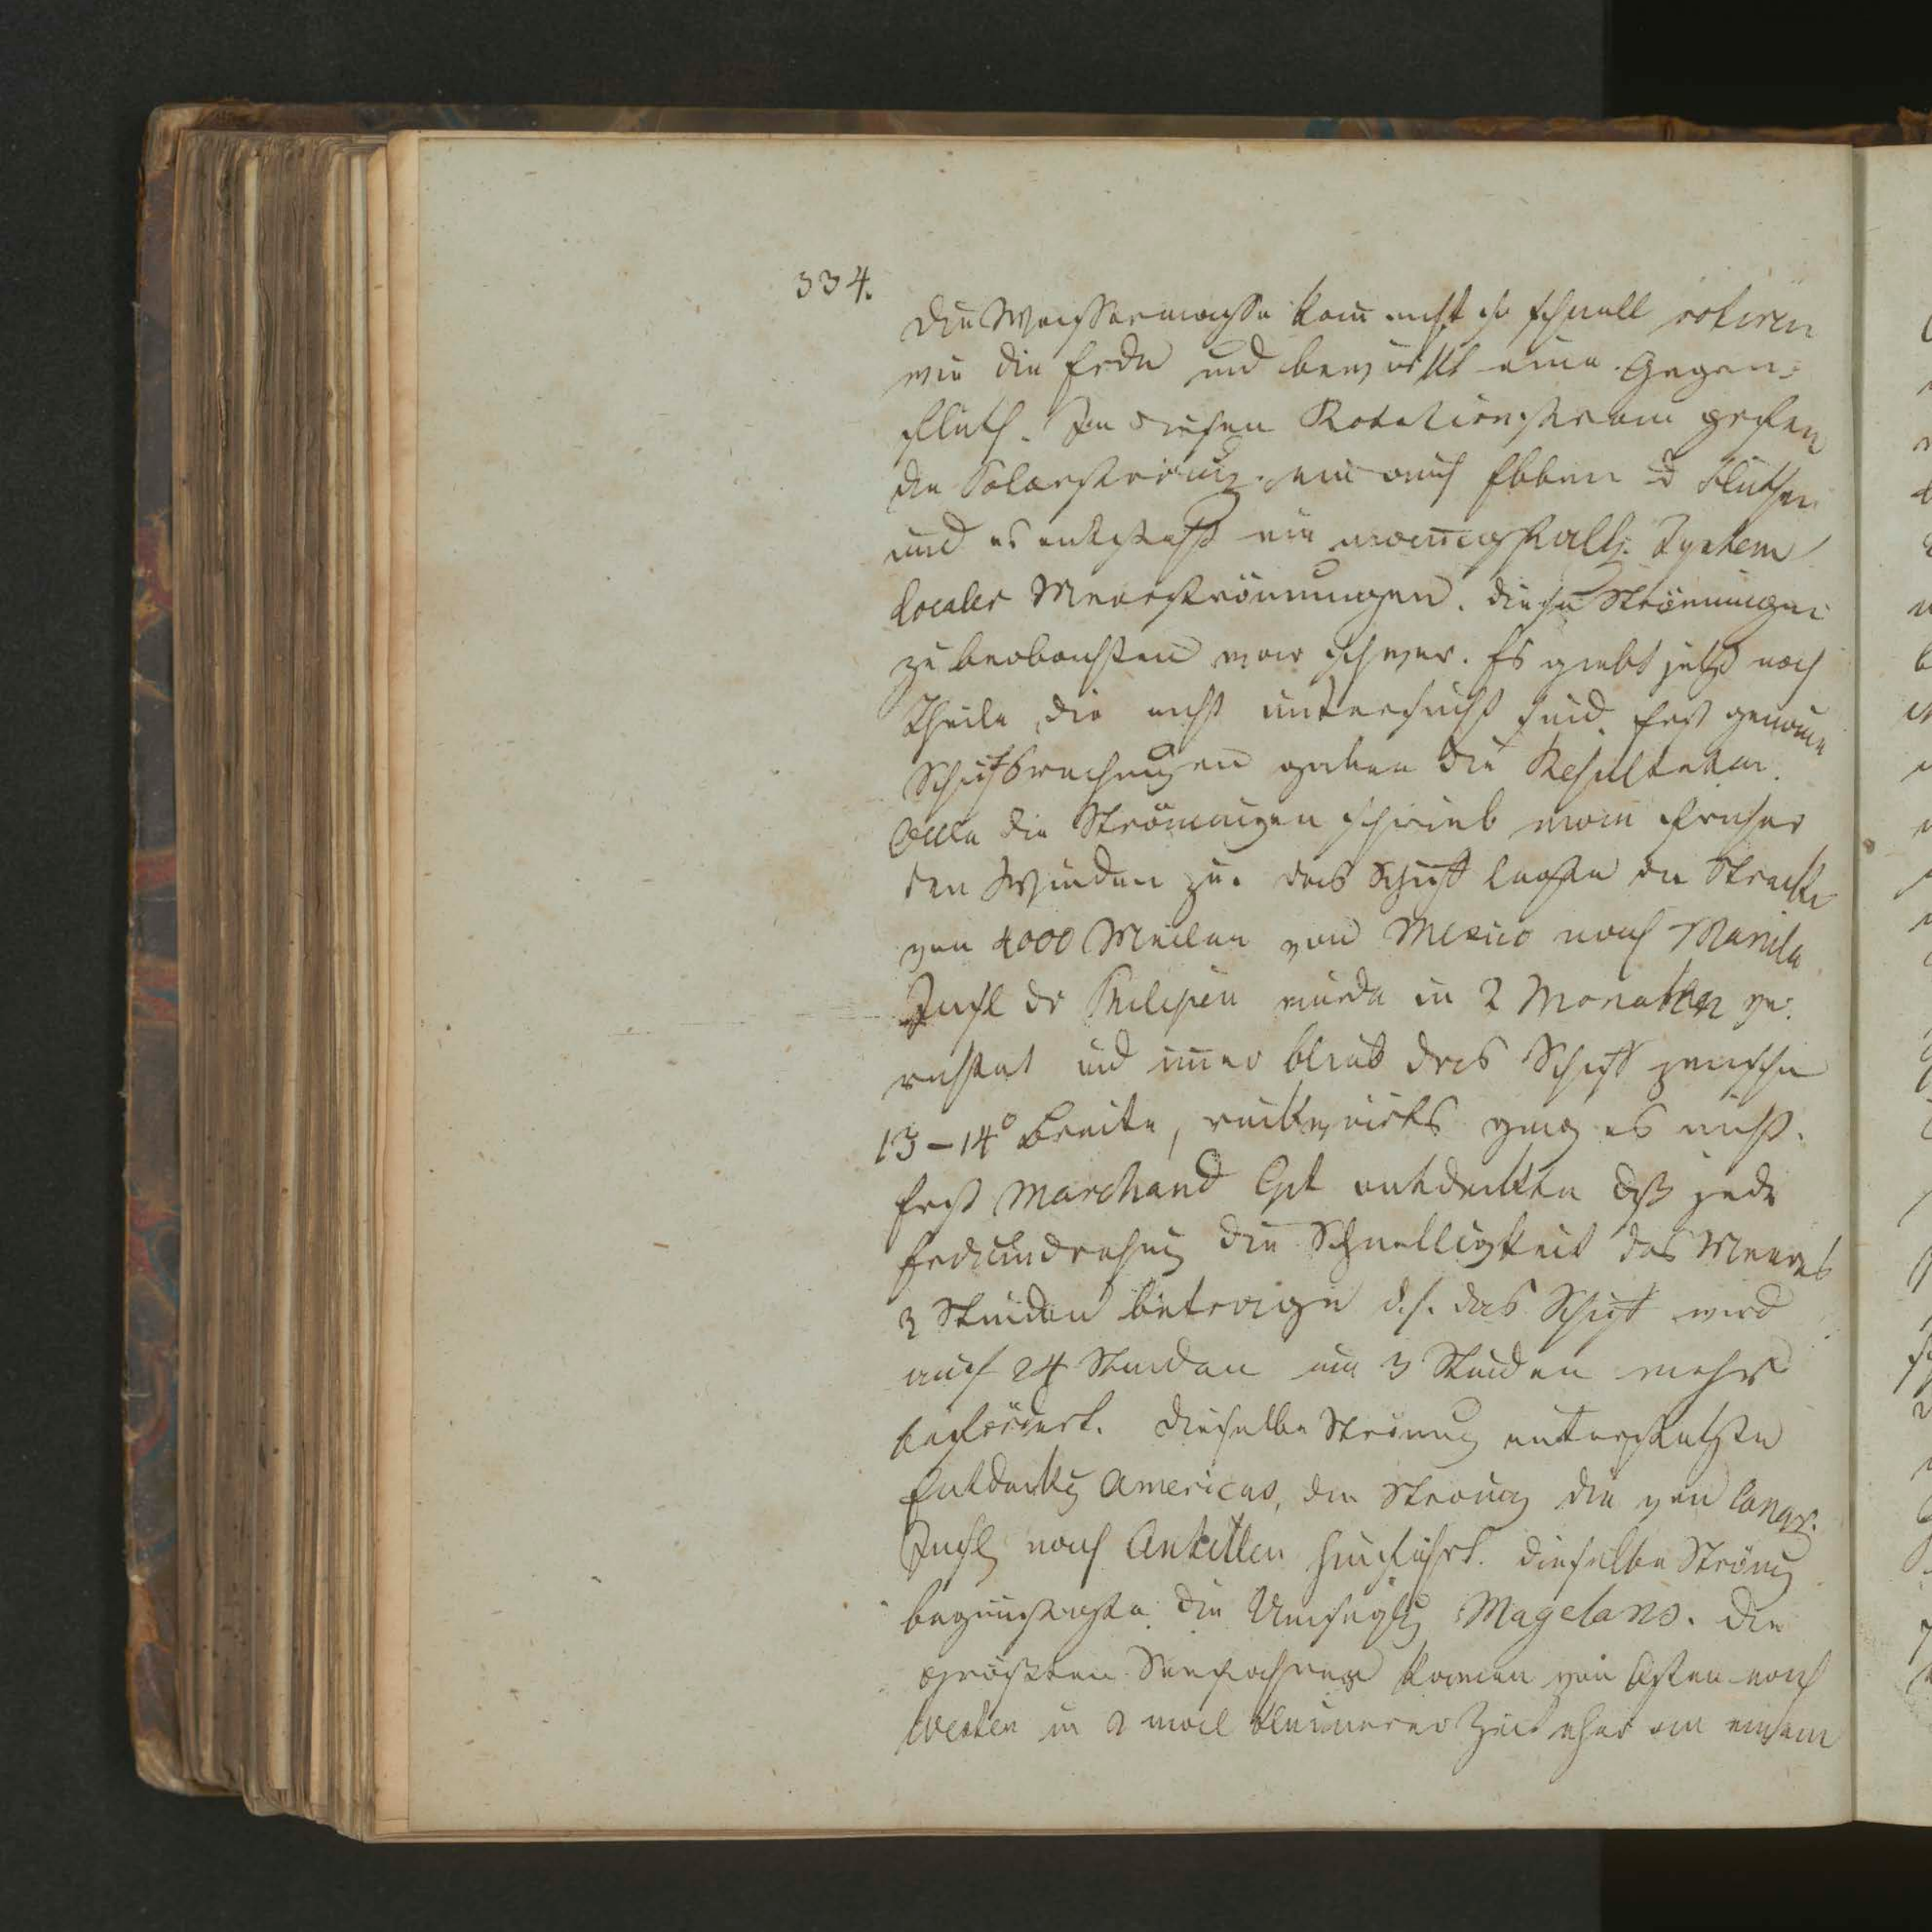 334.
Die Wassermasse kan̅ nicht so schnell rotiren
wie die Erde und bewirkt eine Gegen-
fluth. In diesen Rotationsstrom gehen
die Polarströmg. ein auch Ebben u Fluthen
und es entsteht ein man̅igfaltg. System
localer Meerströmungen. Diese Strömungen
zu beobachten war schwer. Es giebt jetzt noch
Theile, die nicht untersucht sind. Erst genaue
Schiffsrechnungen gaben die Resultate.
Alle die Strömungen schrieb man früher
den Winden zu. Das Schiff die Strecke
von 4000 Meilen von Mexico nach Manila
Insel der Philipen wurde in 2 Monathen ver-
richtet und im̅er blieb das Schiff zwischen
13-14° Breite, rückwärts ging es nicht.
Erst Marchand Cpt entdeckte daß jede
Erdumdrehung die Schnelligkeit des Meeres
3 Stunden betrage d.h. das Schiff wird
auf 24 Stunden um 3 Stunden mehr
befördert. Dieselbe Strömung unterstützte
Entdeckg Americas, die Strömg die von Canar.
Inseln nach Antillen hinführt. Dieselbe Strömg
begünstigte die Umseglg Magelans. Die
größten Seefahrer kamen von Osten nach
Westen in 2 mal kleinerer Zeit eher an einem